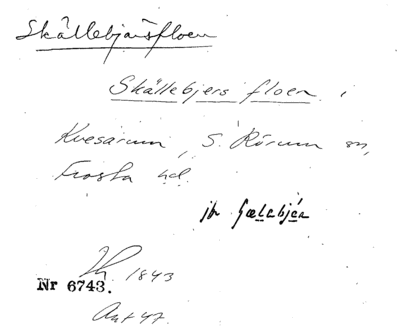 Skällebjärsfloen
Skällebjers floen i
Kvesarum, S. Rörum sn,
Frosta hd.
jfr
1843
Nr 6743.
Ant 47.